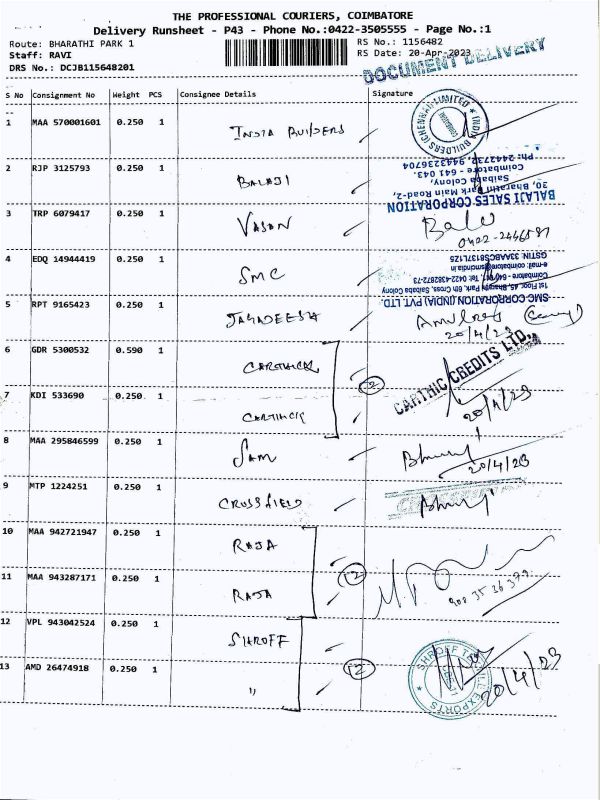 THE PROFESSIONAL COURIERS, COIMBATORE
Delivery Runsheet - P43 - Phone No.:0422-3505555 - Page No.:1
Route: BHARATHI PARK 1 RS No.: 1156482
Staff: RAVI RS Date: 20-Apr-2023
DRS No.: DCJB115648201
DOCUMENT DELIVERY
S No Consignment No Weight PCS Consignee Details Signature
1 MAA 570001601 0.250 1 INDIA BUILDERS
INDIA BUILDERS (CHENNAI) LIMITED
2 RJP 3125793 0.250 1 BALAJI
BALAJI SALES CORPORATION
30, Bharathi Park Main Road-2,
Saibaba Colony,
Coimbatore - 641 043.
3 TRP 6079417 0.250 1 VASAN
Balu
0422-2446581
4 EDQ 14944419 0.250 1 SMC
SMC CORPORATION (INDIA) PVT. LTD.
1st Floor, 45, Bharathi Park, 6th Cross, Saibaba Colony
5 RPT 9165423 0.250 1 JAGADEESA
20/4/23
6 GDR 5300532 0.590 1 CARTHICK
2
CARTHIC CREDITS LTD.
7 KDI 533690 0.250 1 CARTHICK
20/4/23
8 MAA 295846599 0.250 1 SAM
20/4/23
9 MTP 1224251 0.250 1 CROSSFIELD
10 MAA 942721947 0.250 1 RAJA
2
11 MAA 943287171 0.250 1 RAJA
12 VPL 943042524 0.250 1 SHROFF
2
13 AMD 26474918 0.250 1 "
20/4/23